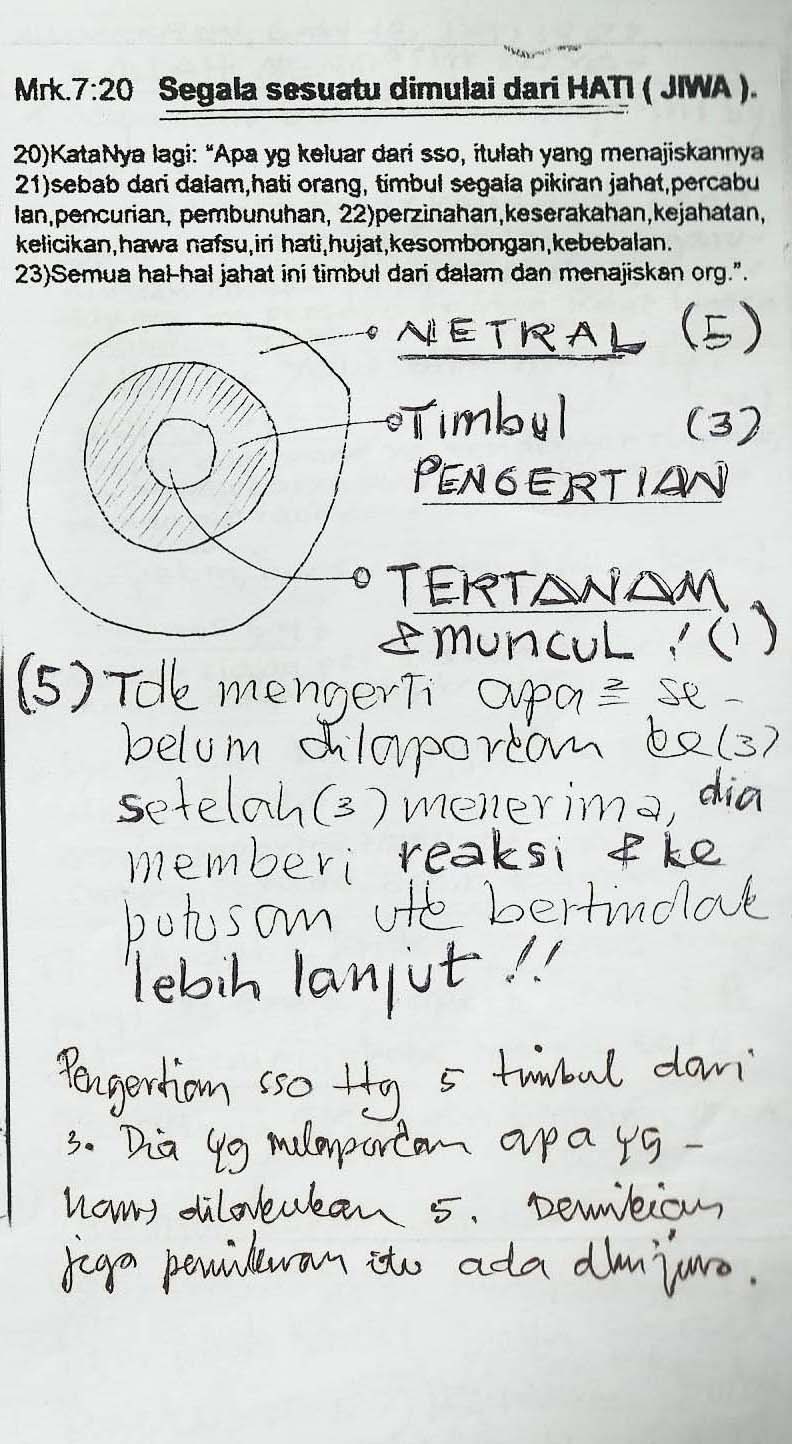 Mrk.7:20 Segala sesuatu dimulai dari HATI ( JIWA ).
20)KataNya lagi: "Apa yg keluar dari sso, itulah yang menajiskannya
21)sebab dari dalam,hati orang, timbul segala pikiran jahat,percabu
lan,pencurian, pembunuhan, 22)perzinahan,keserakahan,kejahatan,
kelicikan,hawa nafsu,iri hati,hujat,kesombongan,kebebalan.
23)Semua hal-hal jahat ini timbul dari dalam dan menajiskan org.".
NETRAL (5)
Timbul (3)
PENGERTIAN
TERTANAM
& MUNCUL ! (1)
(5) Tdk mengerti apa2 se-
belum dilaporkan ke (3)
setelah (3) menerima, dia
memberi reaksi & ke
putusan utk bertindak
lebih lanjut !!
Pengertian sso ttg 5 timbul dari
3. Dia yg melaporkan apa yg
harus dilakukan 5. Demikian
juga pemikiran itu ada dlm jiwa.